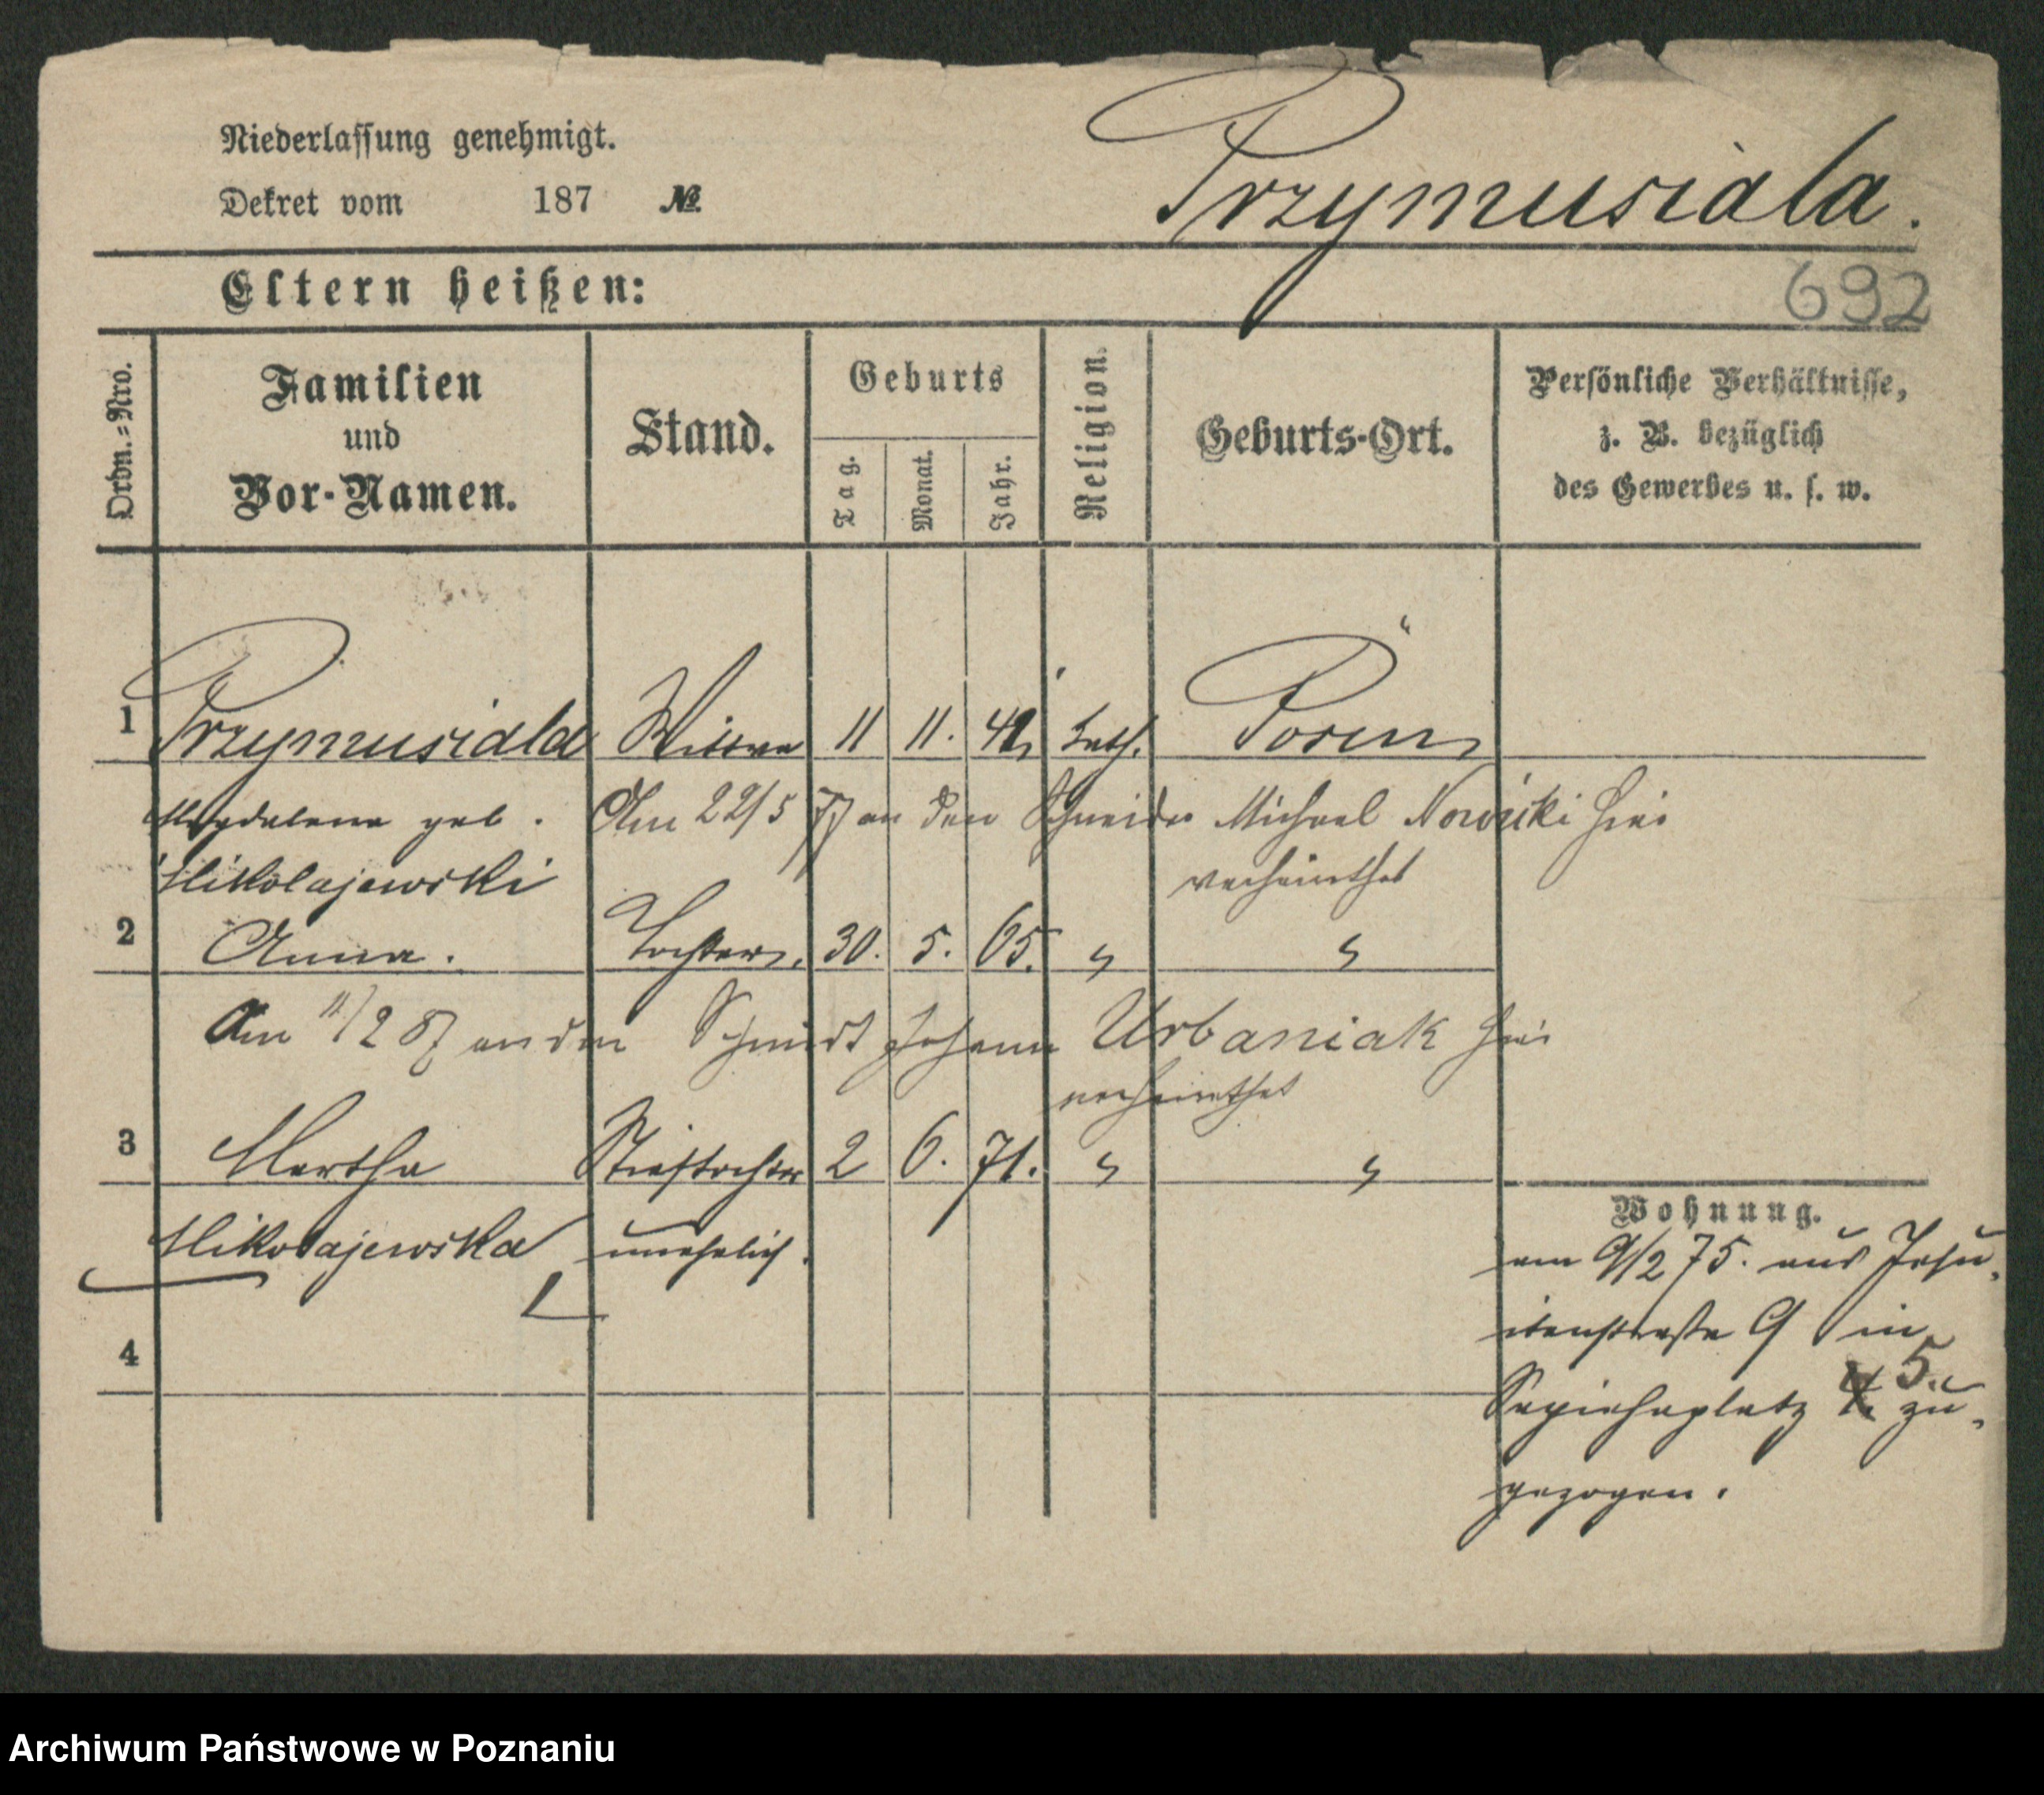 Niederlassung genehmigt.
Dekret vom 187 №
Przymusiala.
692
Eltern heißen:
Ordn.-Nro.
Familien
und
Vor-Namen.
Stand.
Geburts
Tag.
Monat.
Jahr.
Religion.
Geburts-Ort.
Persönliche Verhältnisse,
z. B. bezüglich
des Gewerbes u. s. w.
1 Przymusiala Wittwe 11 11. kath. Posen
Magdalena geb. Am 22/5 77 an den Schneider Michael Nowicki hier
Mikolajewski verheirathet
2 Anna. Tochter. 30. 5. 65. " "
Am 11/2 87 an den Schmidt Johann Urbaniak hier
verheirathet
3 Martha Stieftochter 2 6. 71. " "
Mikolajewska unehelich.
4
Wohnung.
am 9/2 75. aus Jesu-
itenstraße 9 in
Sapiehaplatz 5. zu-
gezogen.
Archiwum Państwowe w Poznaniu